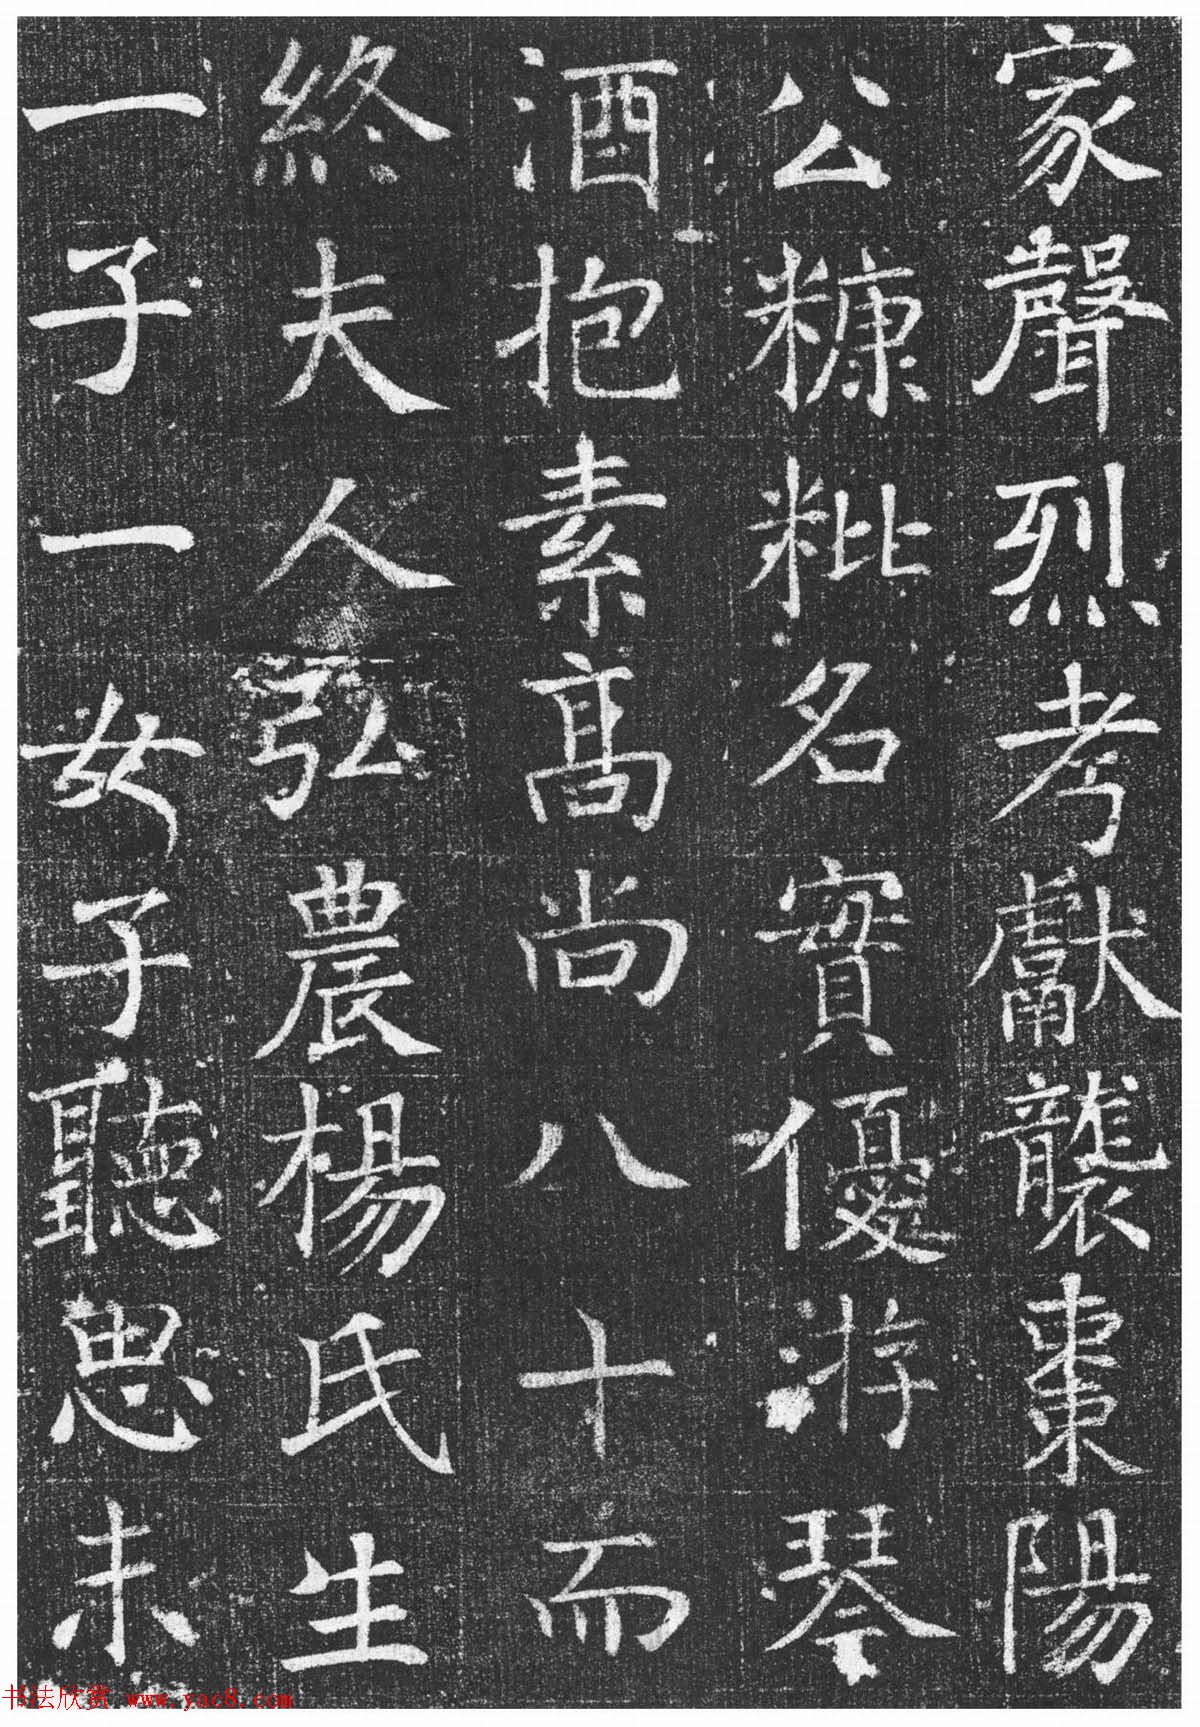 家聲烈考獻襲棗陽
公糠粃名實優游琴
酒抱素高尚八十而
終夫人弘農楊氏生
一子一女子聽思未
书法欣赏 www.yac8.com